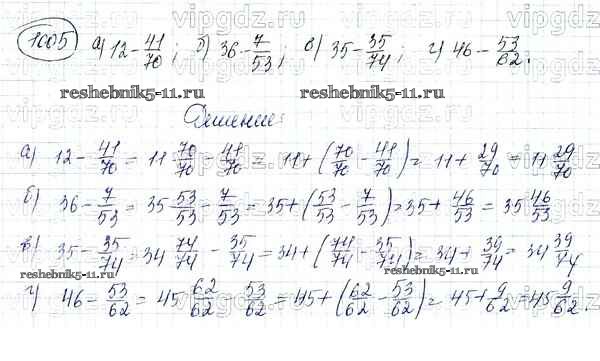 1005 а) 12 - 41/70; б) 36 - 7/53; в) 35 - 35/74; г) 46 - 53/62.
reshebnik5-11.ru reshebnik5-11.ru
Решение:
а) 12 - 41/70 = 11 70/70 - 41/70 = 11 + (70/70 - 41/70) = 11 + 29/70 = 11 29/70
б) 36 - 7/53 = 35 53/53 - 7/53 = 35 + (53/53 - 7/53) = 35 + 46/53 = 35 46/53
в) 35 - 35/74 = 34 74/74 - 35/74 = 34 + (74/74 - 35/74) = 34 + 39/74 = 34 39/74
reshebnik5-11.ru reshebnik5-11.ru
г) 46 - 53/62 = 45 62/62 - 53/62 = 45 + (62/62 - 53/62) = 45 + 9/62 = 45 9/62.